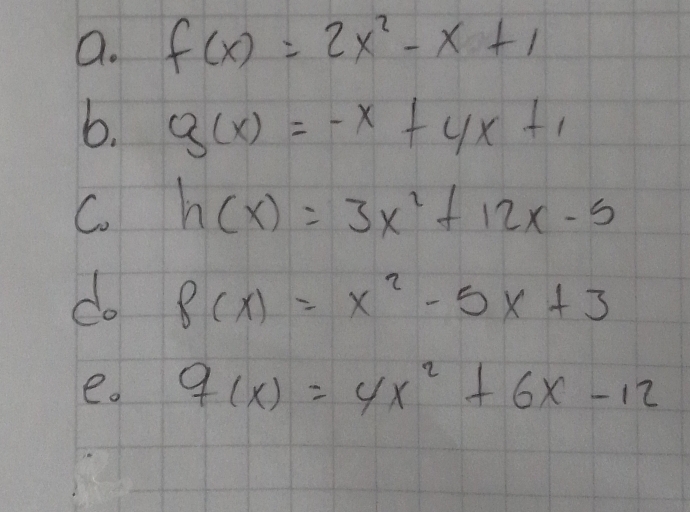 a. f(x) = 2x² - x + 1
b. g(x) = -x + 4x + 1
c. h(x) = 3x² + 12x - 5
d. p(x) = x² - 5x + 3
e. q(x) = 4x² + 6x - 12